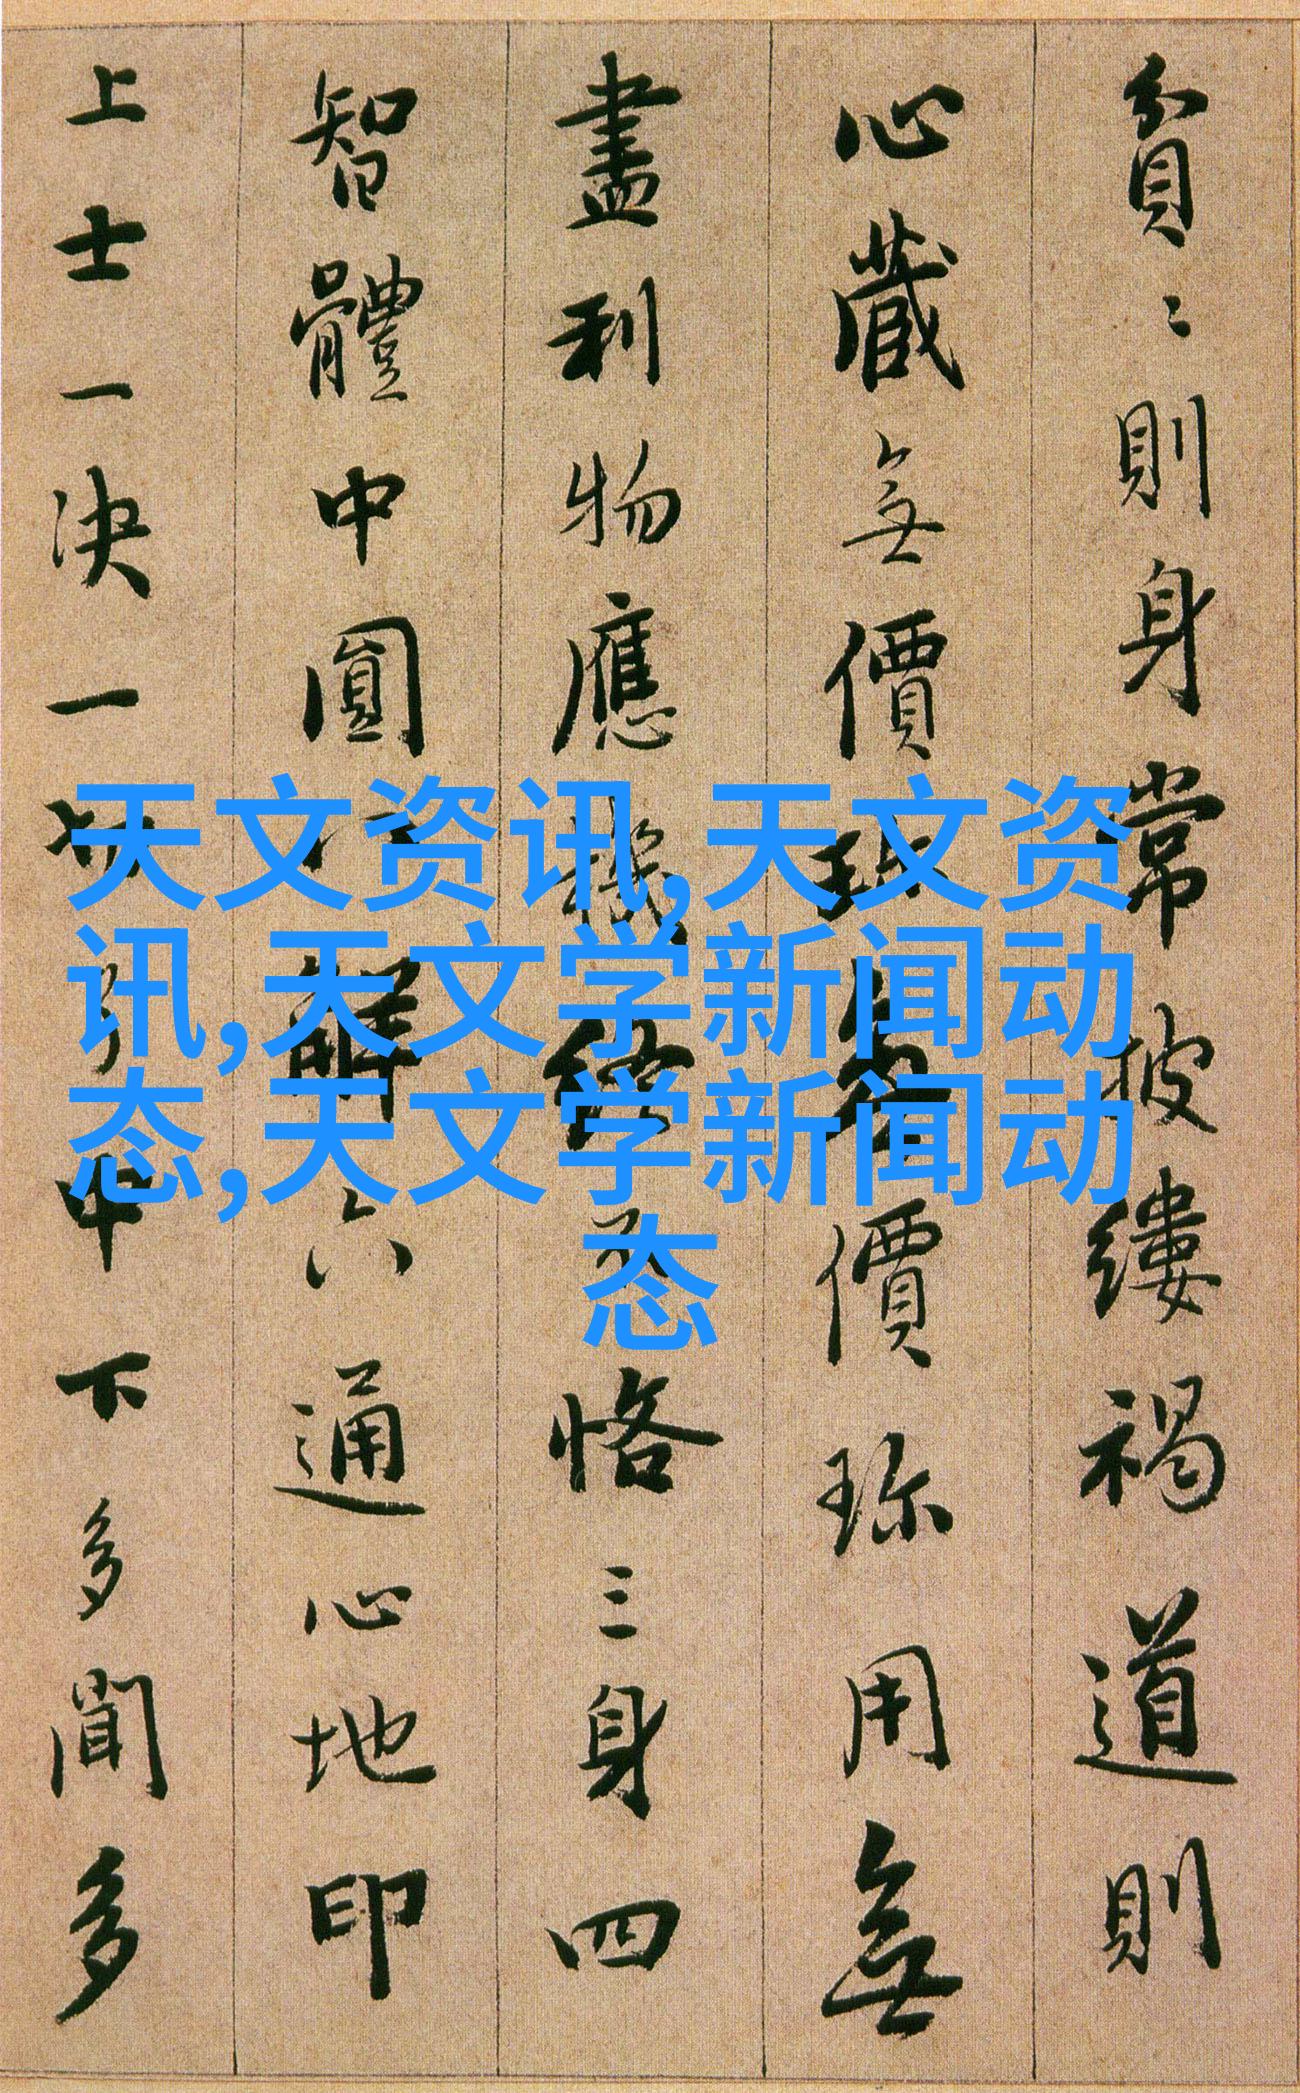 貧〻則身常披縷褐道則
心藏無價珎無價珎用無
盡利物應機終不恪三身四
智體中圓八解六通心地印
上士一決一切了中下多聞多
天文资讯,天文资
讯,天文学新闻动
态,天文学新闻动
态